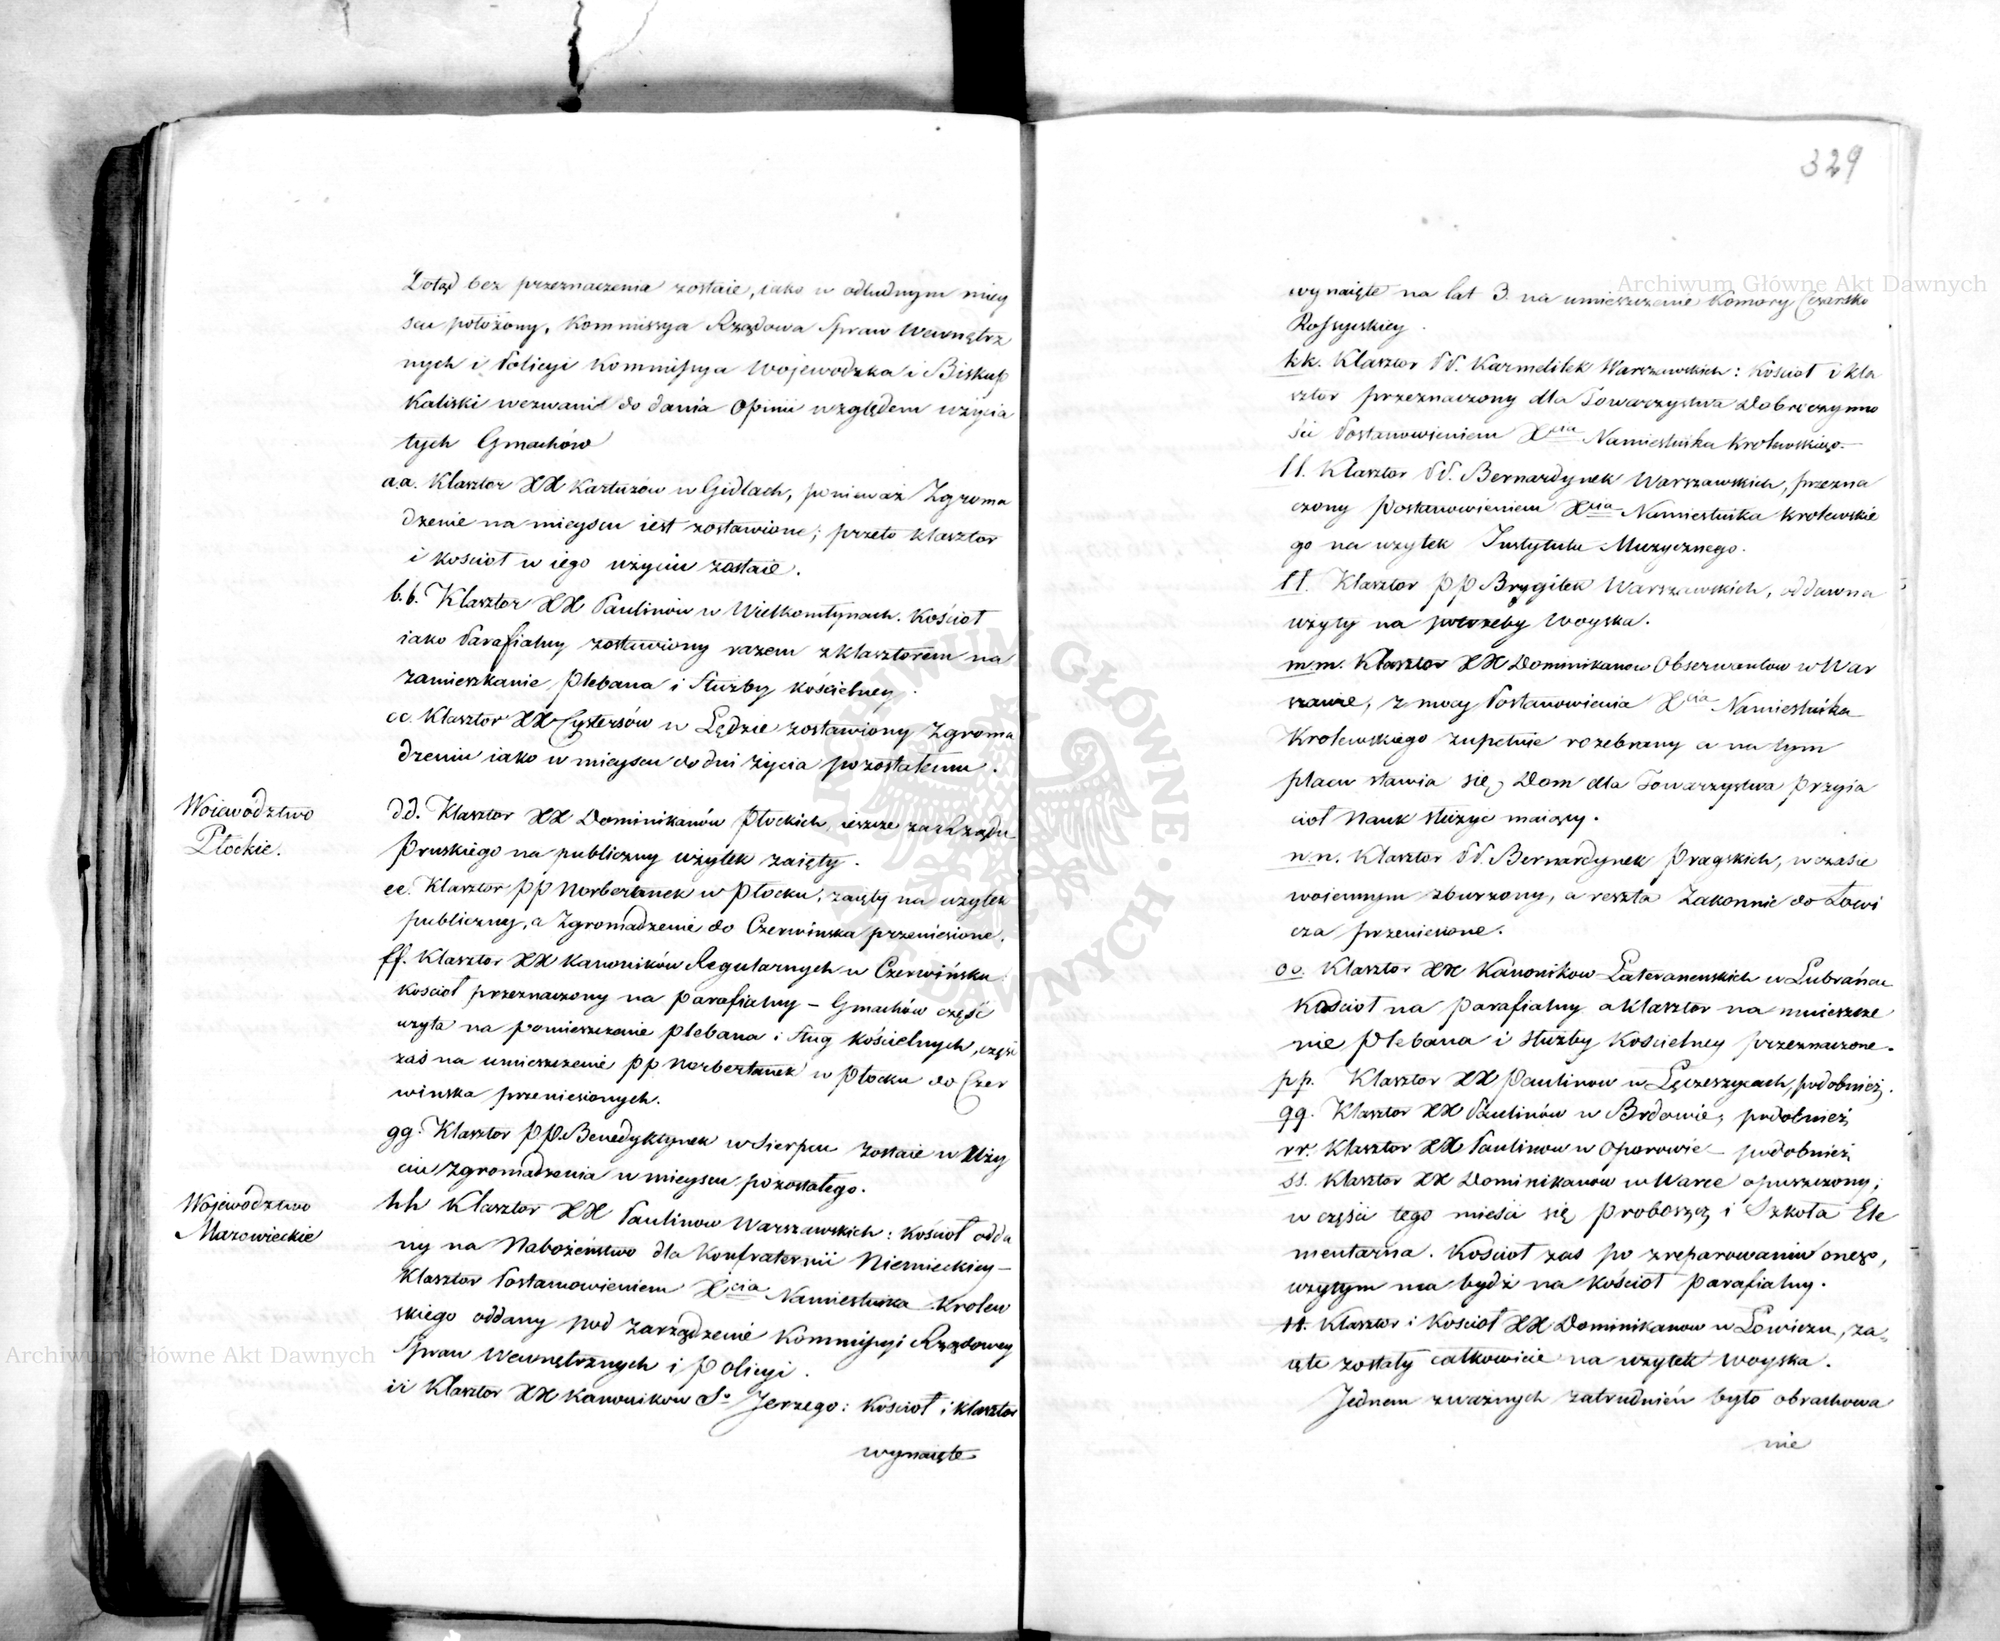 Dotąd bez przeznaczenia zostaie, iako w odludnym miey
scu położony, Kommissya Rządowa Spraw Wewnętrz
nych i Policyi Kommissya Wojewodzka i Biskup
Kaliski wezwani do dania Opinii względem użycia
tych Gmachów
a.a. Klasztor XX Kartuzów w Gidlach, ponieważ Zgroma
dzenie na mieyscu iest zostawione; przeto klasztor
i Kościoł w iego użyciu zostaie.
b.b. Klasztor XX Paulinów w Wielkomłynach. Kościoł
iako Parafialny zostawiony razem z klasztorem na
zamieszkanie Plebana i Służby kościelney.
cc. Klasztor XX Cystersów w Lędzie zostawiony Zgroma
dzeniu iako w mieyscu do dni życia pozostałemu.
Woiewództwo
Płockie.
dd. Klasztor XX Dominikanów Płockich, ieszcze za Rządu
Pruskiego na publiczny użytek zaięty.
ee. Klasztor PP Norbertanek w Płocku, zaięty na użytek
publiczny, a Zgromadzenie do Czerwińska przeniesione.
ff. Klasztor XX Kanoników Regularnych w Czerwińsku
Kościoł przeznaczony na parafialny – Gmachów część
użyta na pomieszczenie plebana i Sług kościelnych, część
zaś na umieszczenie PP Norbertanek w Płocku do Czer
wińska przeniesionych.
gg. Klasztor PP. Benedyktynek w Sierpcu zostaie w Uży
ciu Zgromadzenia w mieyscu pozostałego.
Wojewodztwo
Mazowieckie
hh Klasztor XX Paulinow Warszawskich: Kościoł odda
ny na Nabożeństwo dla Konfraternii Niemieckiey –
Klasztor Postanowieniem Xcia Namiestnika Krolew
skiego oddany pod zarządzenie Kommissyi Rządowey
Spraw Wewnętrznych i Policyi.
ii Klasztor XX Kanonikow So Jerzego: Kościoł i klasztor
wynaięte
329
wynaięte na lat 3. na umieszczenie Komory Cesarsko
Rossyiskiey.
kk. Klasztor PP. Karmelitek Warszawskich: Kościoł i kla
sztor przeznaczony dla Towarzystwa Dobroczynno
ści Postanowieniem Xcia Namiestnika Krolewskiego. –
ll. Klasztor PP. Bernardynek Warszawskich, przezna
czony Postanowieniem Xcia Namiestnika Krolewskie
go na użytek Instytutu Muzycznego.
ll. Klasztor PP Brygitek Warszawskich, oddawna
użyty na potrzeby Woyska.
m.m. Klasztor XX Dominikanow Obserwantow w War
szawie, z mocy Postanowienia Xcia Namiestnika
Krolewskiego zupełnie rozebrany a na tym
placu stawia się Dom dla Towarzystwa Przyia
cioł Nauk służyć maiący.
nn. Klasztor PP. Bernardynek Pragskich, w czasie
woiennym zburzony, a reszta Zakonnic do Łowi
cza przeniesione.
oo. Klasztor XX Kanonikow Lateranenskich w Lubrańcu
Kościoł na parafialny a Klasztor na mieszcze
nie Plebana i służby Kościelney przeznaczone.
pp. Klasztor XX Paulinow w Łęczeszycach, podobnież.
qq. Klasztor XX Paulinów w Brdowie, podobnież
rr. Klasztor XX Paulinow w Oporowie – podobnież
ss. Klasztor XX Dominikanow w Warce opuszczony;
w części tego mieści się Proboszcz i Szkoła Ele
mentarna. Kościoł zaś po zreparowaniu onego,
użytym ma bydź na kościoł parafialny.
tt. Klasztor i Kościoł XX Dominikanow w Łowiczu, za-
ięte zostały całkowicie na użytek Woyska.
Jednem z ważnych zatrudnień było obrachowa
nie
Archiwum Główne Akt Dawnych
Archiwum Główne Akt Dawnych
ARCHIWUM GŁÓWNE AKT DAWNYCH